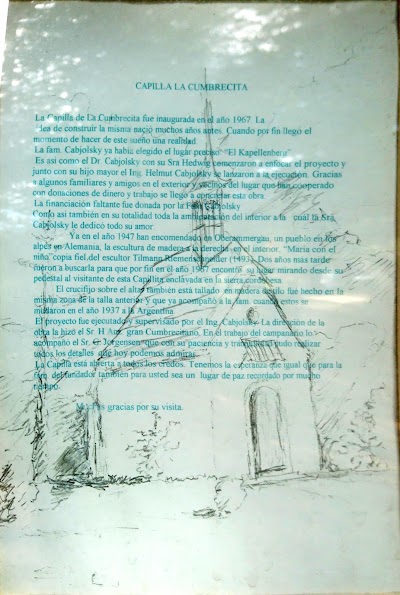 CAPILLA LA CUMBRECITA
La Capilla de La Cumbrecita fue inaugurada en el año 1967. La
idea de construir la misma nació muchos años antes. Cuando por fin llegó el
momento de hacer de este sueño una realidad
La fam. Cabjolsky ya había elegido el lugar preciso "El Kapellenberg"
Es así como el Dr. Cabjolsky con su Sra Hedwig comenzaron a enfocar el proyecto y
junto con su hijo mayor el Ing. Helmut Cabjolsky se lanzaron a la ejecución. Gracias
a algunos familiares y amigos en el exterior y vecinos del lugar que han cooperado
con donaciones de dinero y trabajo se llegó a concretar esta obra.
La financiación faltante fue donada por la Fam. Cabjolsky
Como así también en su totalidad toda la ambientación del interior a la cual la Sra.
Cabjolsky le dedicó todo su amor
Ya en el año 1947 han encomendado en Oberammergau, un pueblo en los
alpes en Alemania, la escultura de madera a la derecha en el interior, "María con el
niño" copia fiel del escultor Tilmann Riemenschneider (1493). Dos años más tarde
fueron a buscarla para que por fin en el año 1967 encontró su lugar mirando desde su
pedestal al visitante de esta Capillita enclavada en la sierra cordobesa
El crucifijo sobre el altar también está tallado en madera de tilo fue hecho en la
misma zona de la talla anterior y que ya acompañó a la fam. cuando estos se
mudaron en el año 1937 a la Argentina
El proyecto fue ejecutado y supervisado por el Ing. Cabjolsky. La dirección de la
obra la hizo el Sr. H gran Cumbreciano. En el trabajo del campanario lo
acompañó el Sr. G Jorgensen que con su paciencia y trabajo pudo realizar
todos los detalles que hoy podemos admirar
La Capilla está abierta a todos los credos. Tenemos la esperanza que igual que para la
fam. de fundador también para usted sea un lugar de paz recordado por mucho
tiempo.
Muchas gracias por su visita.